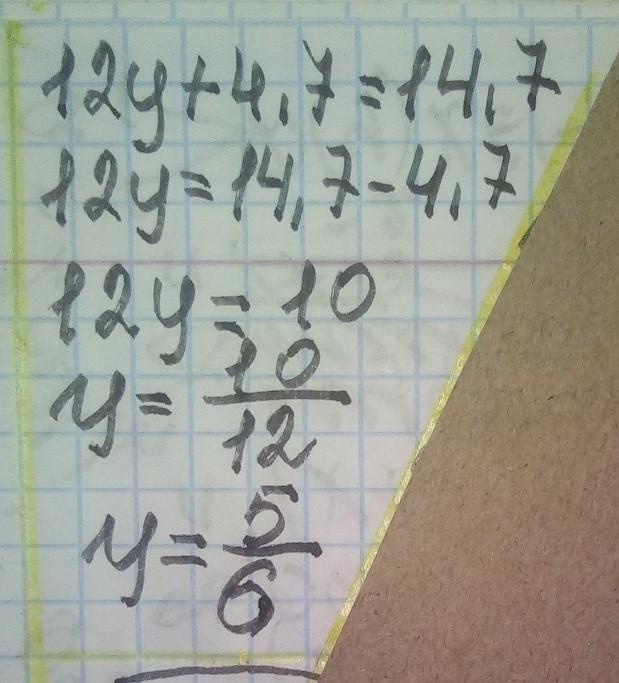 12y+4,7=14,7
12y=14,7-4,7
12y=10
y=10/12
y=5/6